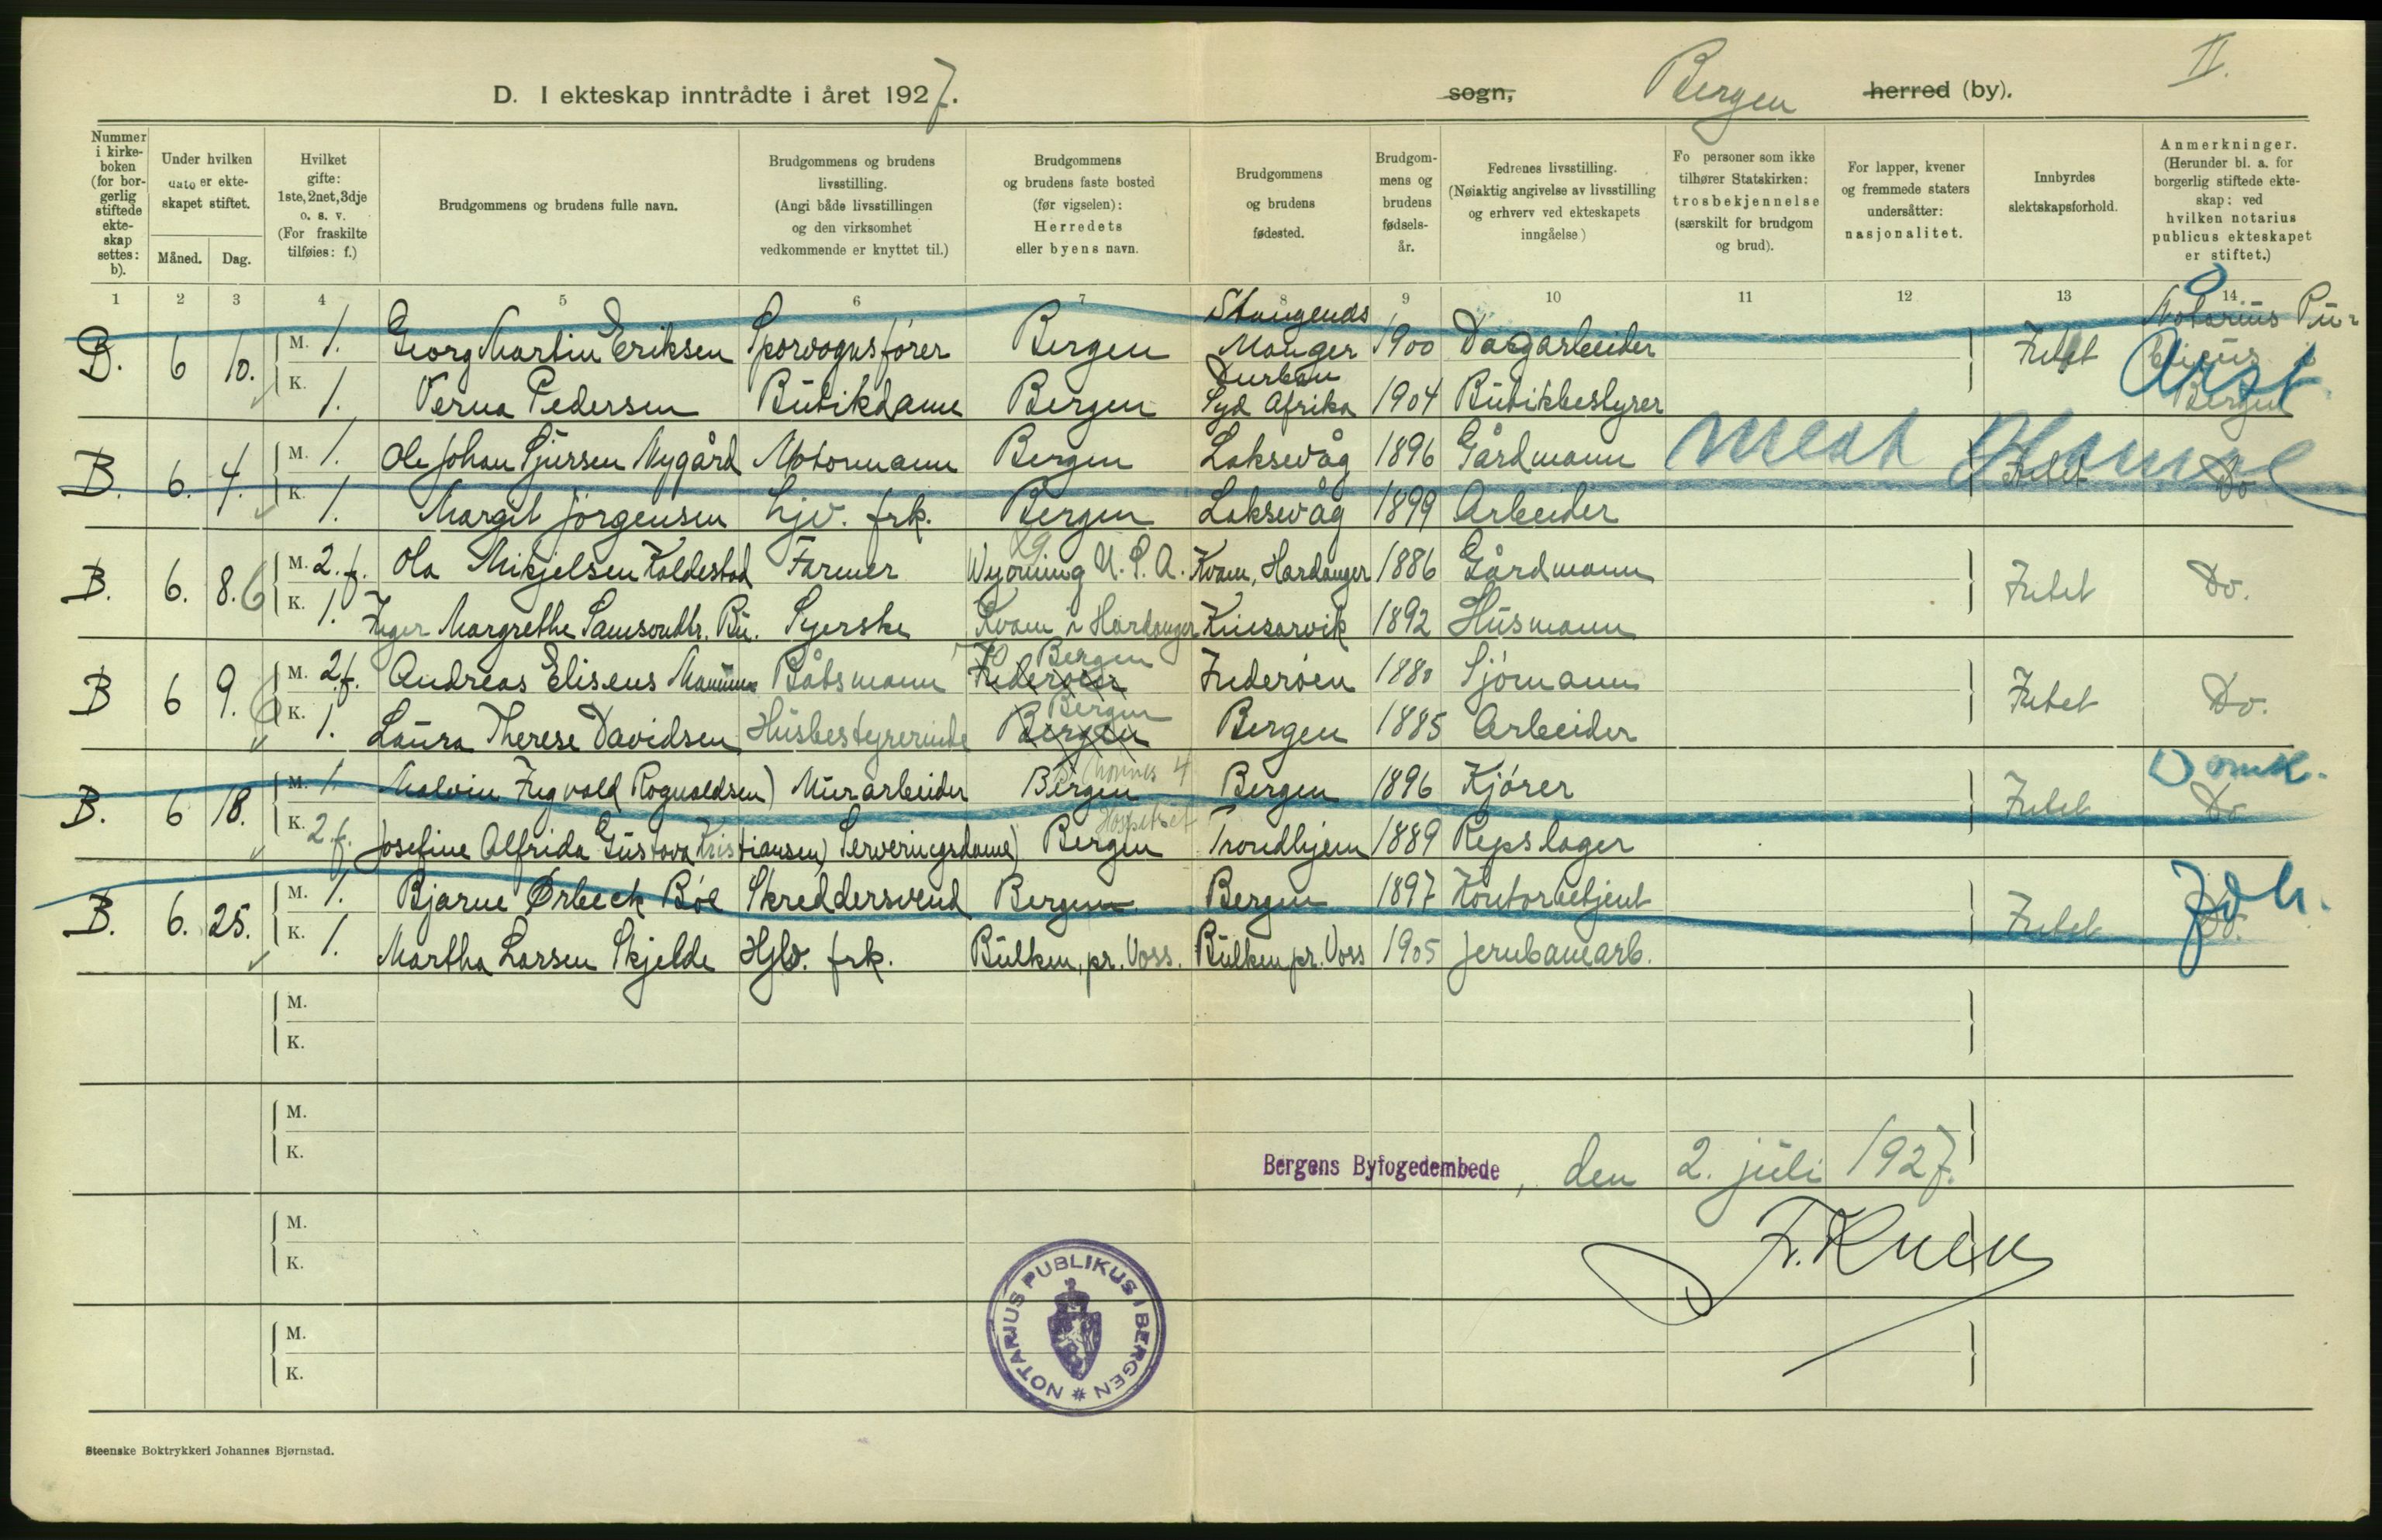 II.
D. I ekteskap inntrådte i året 1927. sogn, Bergen herred (by).
Nummer i kirke- boken (for bor- gerlig stiftede ekte- skap settes: b).
Under hvilken dato er ekte- skapet stiftet.
Måned. Dag.
Hvilket gifte: 1ste, 2net, 3dje o. s. v. (For fraskilte tilføies: f.)
Brudgommens og brudens fulle navn.
Brudgommens og brudens livsstilling. (Angi både livsstillingen og den virksomhet vedkommende er knyttet til.)
Brudgommens og brudens faste bosted (før vigselen): Herredets eller byens navn.
Brudgommens og brudens fødested.
Brudgom- mens og brudens fødsels- år.
Fedrenes livsstilling. (Nøiaktig angivelse av livsstilling og erhverv ved ekteskapets inngåelse)
Fo personer som ikke tilhører Statskirken: trosbekjennelse (særskilt for brudgom og brud).
For lapper, kvener og fremmede staters undersåtter: nasjonalitet.
Innbyrdes slektskapsforhold.
Anmerkninger. (Herunder bl. a. for borgerlig stiftede ekte- skap: ved hvilken notarius publicus ekteskapet er stiftet.)
1 2 3 4 5 6 7 8 9 10 11 12 13 14
B. 6 10. M. 1. Georg Martin Eriksen Sporvognsfører Bergen Manger 1900 Dagarbeider Intet Notarius Pu-
blicus i Bergen
K. 1. Verna Pedersen Butikdame Bergen Durban Syd Afrika 1904 Butikbestyrer
B. 6. 4. M. 1. Ole Johan Sjursen Nygård Motormann Bergen Laksevåg 1896 Gårdmann Intet Do
K. 1. Margit Jørgensen Hjv. frk. Bergen Laksevåg 1899 Arbeider
B. 6. 8. 6 M. 2. f. Ola Mikjelsen Koldestad Farmer Wyoming U. S. A. Kvam, Hardanger 1886 Gårdmann Intet Do.
K. 1. Inger Margrethe Samsondtr. Bu. Syerske Kvam i Hardanger Kinsarvik 1892 Husmann
B 6 9. 6 M. 2. f. Andreas Eliseus Båtsmann Bergen Inderøen Inderøen 1880 Sjømann Intet Do.
K. 1. Laura Therese Davidsen Husbestyrerinde Bergen Bergen Bergen 1885 Arbeider
B. 6 18. M. 1. Malvin Ingvald Rognaldsen) Murarbeider Bergen Bergen 1896 Kjører Intet Do Domk.
K. 2 f. Josefine Alfrida Gustava Kristiansen) Serveringsdame) Bergen Trondhjem 1889 Repslager
B. 6. 25. M. 1. Bjarne Ørbeck Bøe Skreddersvend Bergen Bergen 1897 Kontorbetjent Intet Do. Joh.
K. 1. Martha Larsen Skjelde Hjv. frk. Bulken, pr. Voss. Bulken pr. Voss 1905 Jernbanearb.
M.
K.
M.
K.
Bergens Byfogedembede, den 2. juli 1927.
M.
K.
M.
K.
NOTARIUS PUBLIKUS I BERGEN
Steenske Boktrykkeri Johannes Bjørnstad.